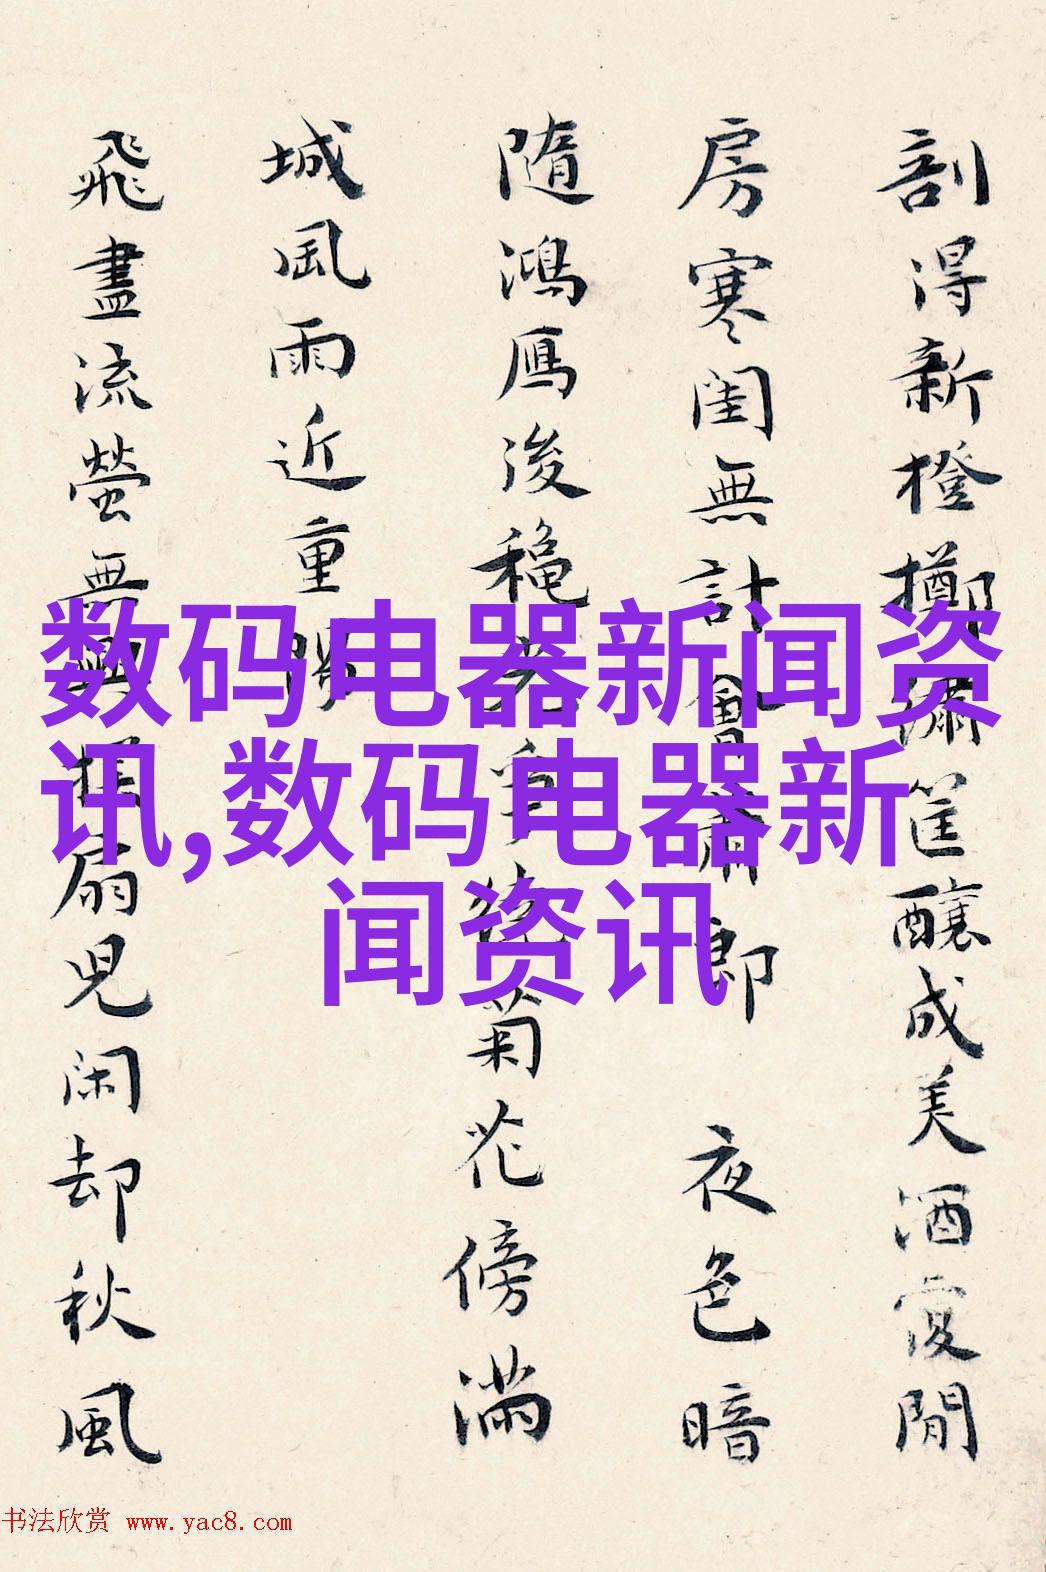 剖得新橙擲繡筐釀成美酒閒
房寒閨無計會蕭郎 夜色暗
隨鴻鴈後穐光重繞菊花傍滿
城風雨近重陽
飛盡流螢無撲扇兒闲却秋風
数码电器新闻资
讯,数码电器新
闻资讯
书法欣赏 www.yac8.com